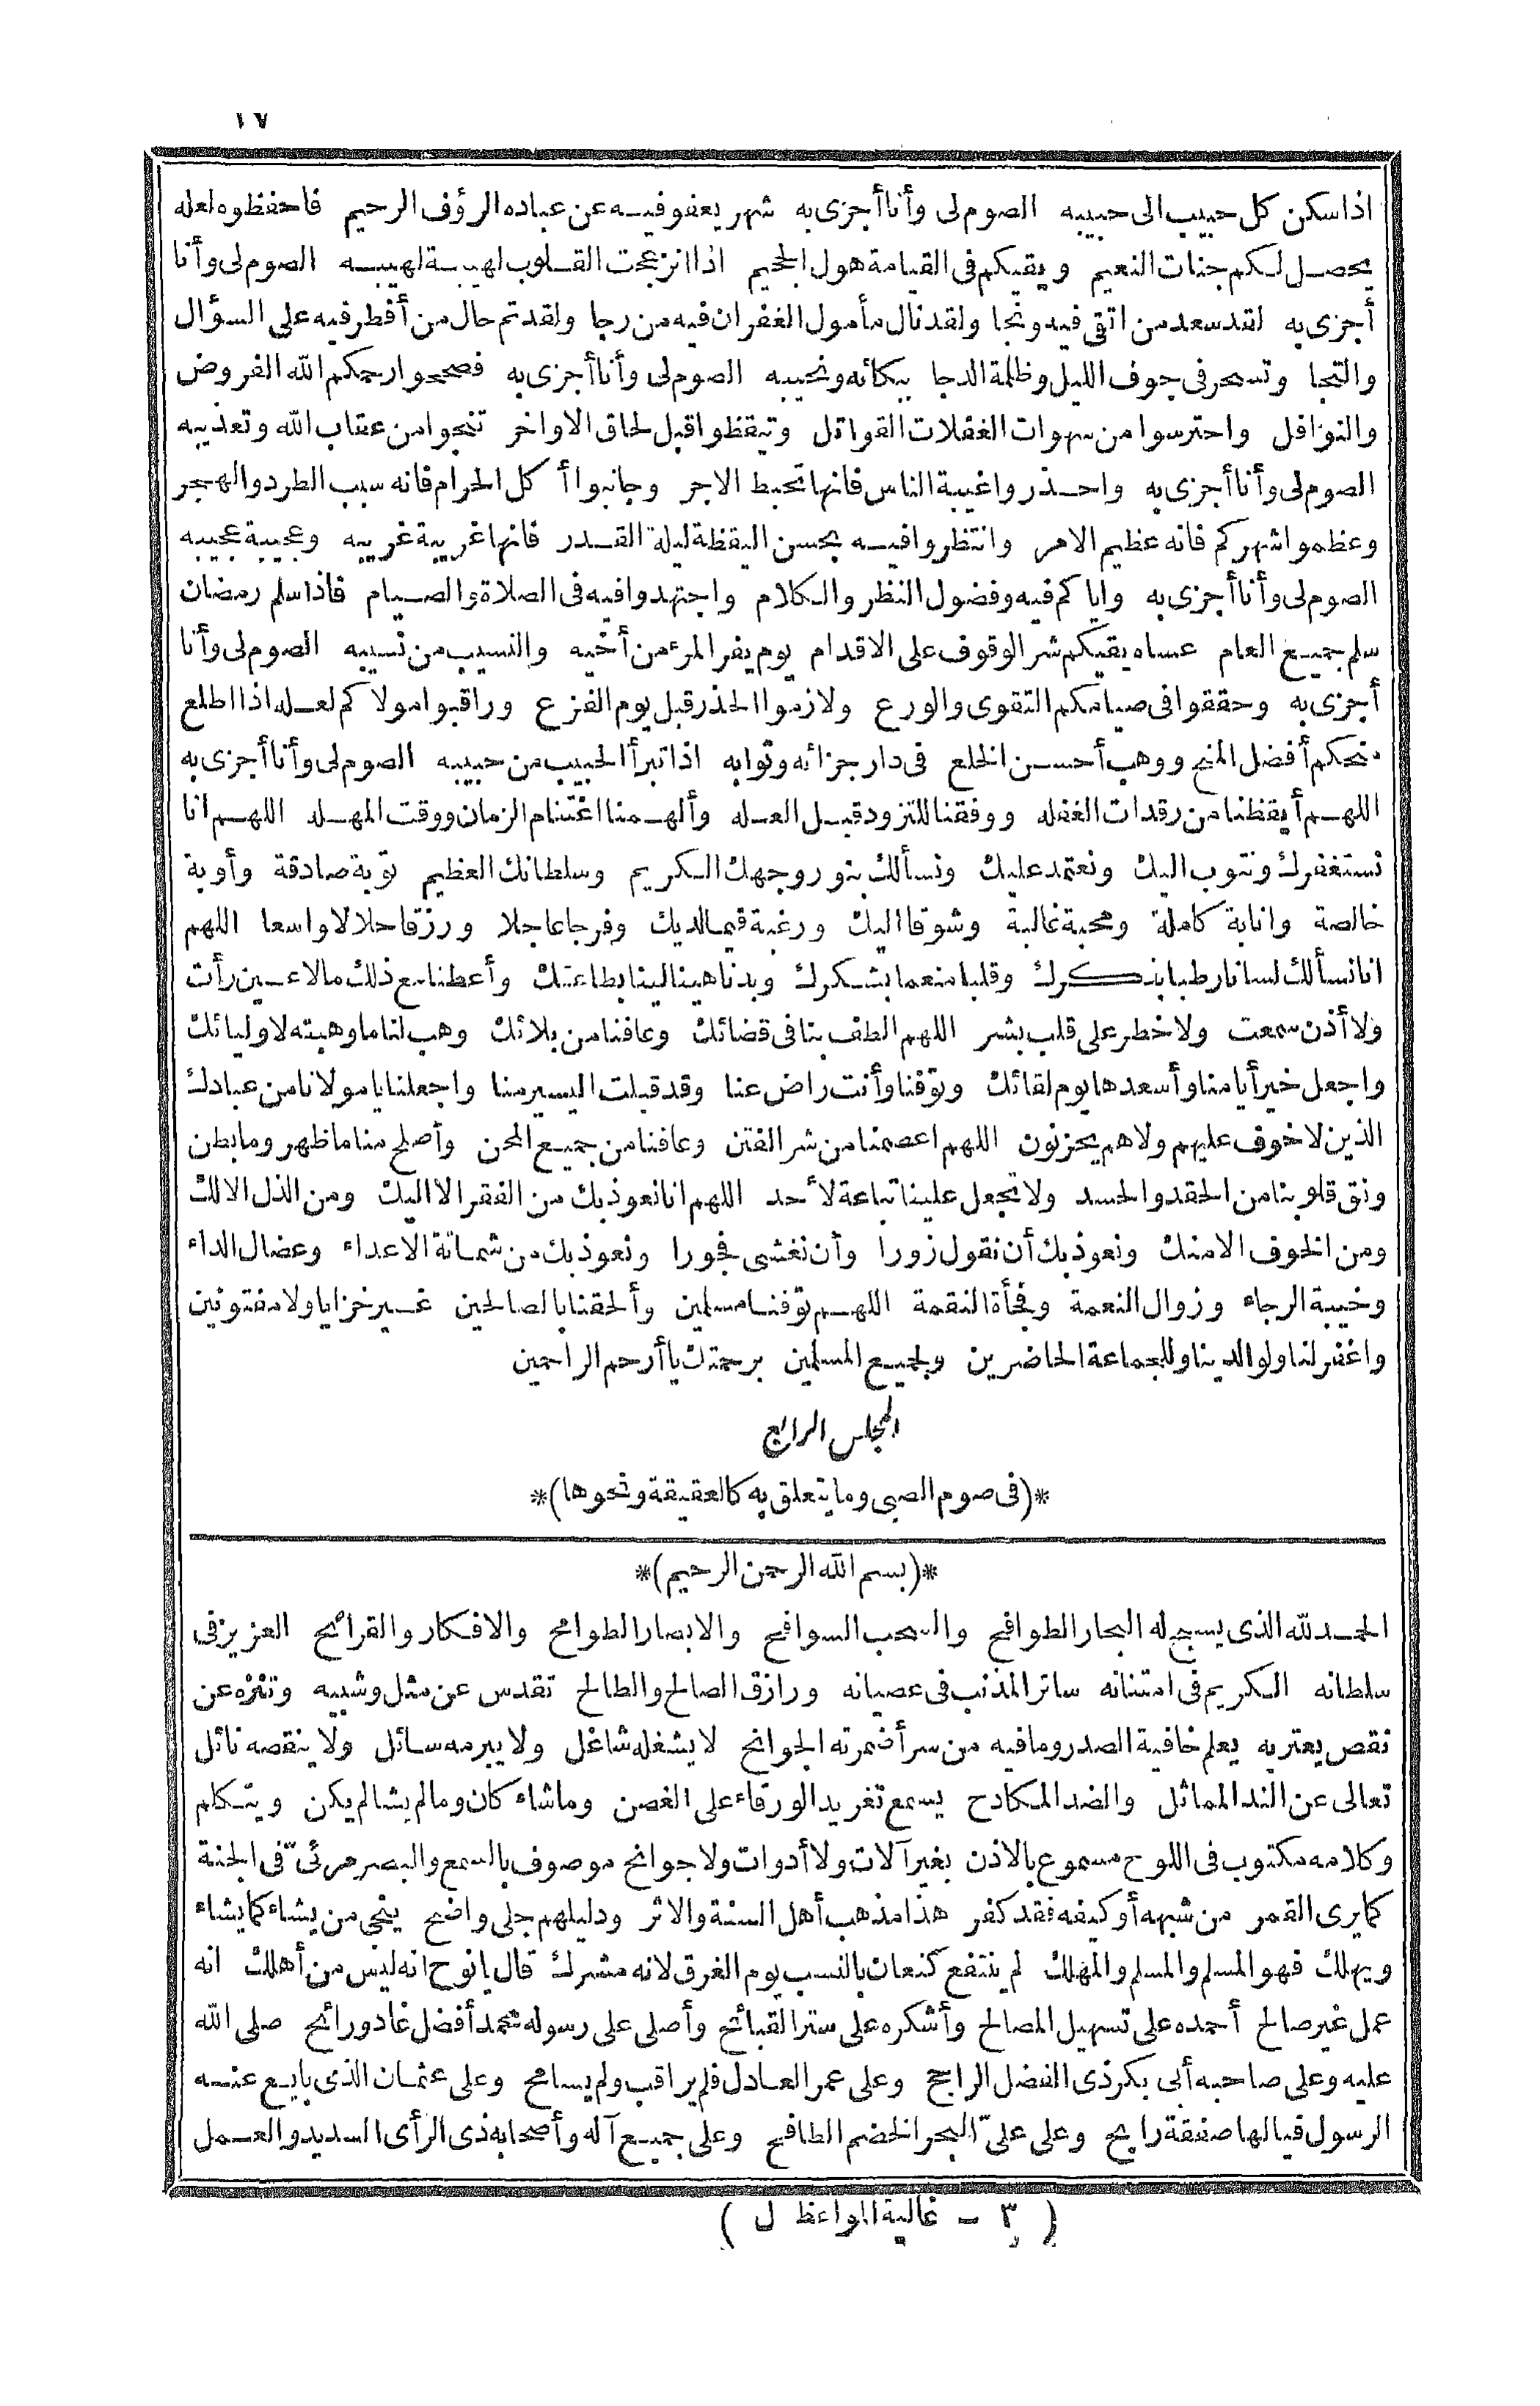 ١٧
اذا سكن كل حبيب الى حبيبه الصوم لى وأنا أجزى به شهر يعفو فيه عن عباده الرؤف الرحيم فاحفظوه لعله
يحصل لكم جنات النعيم ويقيكم فى القيامة هول الجحيم اذا انزعجت القلوب لهيبة لهيبه الصوم لى وأنا
أجزى به لقد سعد من اتقى فيه ونجا ولقد نال مأمول الغفران فيه من رجا ولقد تم حال من أفطر فيه على السؤال
والتجا وتسحر فى جوف الليل وظلمة الدجا ببكائه ونحيبه الصوم لى وأنا أجزى به فصححوا رحمكم الله الفروض
والنوافل واحترسوا من سهوات الغفلات القواتل وتيقظوا قبل لحاق الاواخر تنجوا من عقاب الله وتعذيبه
الصوم لى وأنا أجزى به واحذروا غيبة الناس فانها تحبط الاجر وجانبوا أكل الحرام فانه سبب الطرد والهجر
وعظموا شهركم فانه عظيم الامر وانتظروا فيه بحسن اليقظة ليلة القدر فانها غريبة غريبه وعجيبة عجيبه
الصوم لى وأنا أجزى به واياكم فيه وفضول النظر والكلام واجتهدوا فيه فى الصلاة والصيام فاذا سلم رمضان
سلم جميع العام عساه يقيكم شر الوقوف على الاقدام يوم يفر المرء من أخيه والنسيب من نسيبه الصوم لى وأنا
أجزى به وحققوا فى صيامكم التقوى والورع ولازموا الحذر قبل يوم الفزع وراقبوا مولاكم لعله اذا اطلع
منحكم أفضل المنح ووهب أحسن الخلع فى دار جزائه وثوابه اذا تبرأ الحبيب من حبيبه الصوم لى وأنا أجزى به
اللهم أيقظنا من رقدات الغفله ووفقنا للتزود قبل العله وألهمنا اغتنام الزمان ووقت المهله اللهم انا
نستغفرك ونتوب اليك ونعتمد عليك ونسألك بنور وجهك الكريم وسلطانك العظيم توبة صادقة وأوبة
خالصة وانابة كاملة ومحبة غالبة وشوقا اليك ورغبة فيما لديك وفرجا عاجلا ورزقا حلالا واسعا اللهم
انا نسألك لسانا رطبا بذكرك وقلبا منعما بشكرك وبدنا هينا لينا بطاعتك وأعطنا مع ذلك مالا عين رأت
ولا أذن سمعت ولا خطر على قلب بشر اللهم الطف بنا فى قضائك وعافنا من بلائك وهب لنا ما وهبته لاوليائك
واجعل خير أيامنا وأسعدها يوم لقائك وتوفنا وأنت راض عنا وقد قبلت اليسير منا واجعلنا يا مولانا من عبادك
الذين لا خوف عليهم ولا هم يحزنون اللهم اعصمنا من شر الفتن وعافنا من جميع المحن وأصلح منا ما ظهر وما بطن
ونق قلوبنا من الحقد والحسد ولا تجعل علينا تباعة لأحد اللهم انا نعوذ بك من الفقر الا اليك ومن الذل الا لك
ومن الخوف الا منك ونعوذ بك أن نقول زورا وأن نغشى فجورا ونعوذ بك من شماتة الاعداء وعضال الداء
وخيبة الرجاء وزوال النعمة وفجأة النقمة اللهم توفنا مسلمين وألحقنا بالصالحين غير خزايا ولا مفتونين
واغفر لنا ولوالدينا وللجماعة الحاضرين ولجميع المسلمين برحمتك يا أرحم الراحمين
المجلس الرابع
*(فى صوم الصبى وما يتعلق به كالعقيقة ونحوها)*
*(بسم الله الرحمن الرحيم)*
الحمد لله الذى يسبح له البحار الطوافح والسحب السوافح والابصار الطوامح والافكار والقرائح العزيز فى
سلطانه الكريم فى امتنانه ساتر المذنب فى عصيانه ورازق الصالح والطالح تقدس عن مثل وشبيه وتنزه عن
نقص يعتريه يعلم خافية الصدر وما فيه من سر أضمرته الجوانح لا يشغله شاغل ولا يبرمه سائل ولا ينقصه نائل
تعالى عن الند المماثل والضد المكادح يسمع تغريد الورقاء على الغصن وما شاء كان وما لم يشا لم يكن ويتكلم
وكلامه مكتوب فى اللوح مسموع بالاذن بغير آلات ولا أدوات ولا جوانح موصوف بالسمع والبصر مرئىّ فى الجنة
كما يرى القمر من شبهه أو كيفه فقد كفر هذا مذهب أهل السنة والاثر ودليلهم جلى واضح ينجى من يشاء كما يشاء
ويهلك فهو المسلم والمسلم والمهلك لم ينتفع كنعان بالنسب يوم الغرق لانه مشرك قال يا نوح انه ليس من أهلك انه
عمل غير صالح أحمده على تسهيل المصالح وأشكره على ستر القبائح وأصلى على رسوله محمد أفضل غاد ورائح صلى الله
عليه وعلى صاحبه أبى بكر ذى الفضل الراجح وعلى عمر العادل فلم يراقب ولم يسامح وعلى عثمان الذى بايع عنه
الرسول فيالها صفقة رابح وعلى علىّ البحر الخضم الطافح وعلى جميع آله وأصحابه ذى الرأى السديد والعمل
(٣ - غالية المواعظ ل)